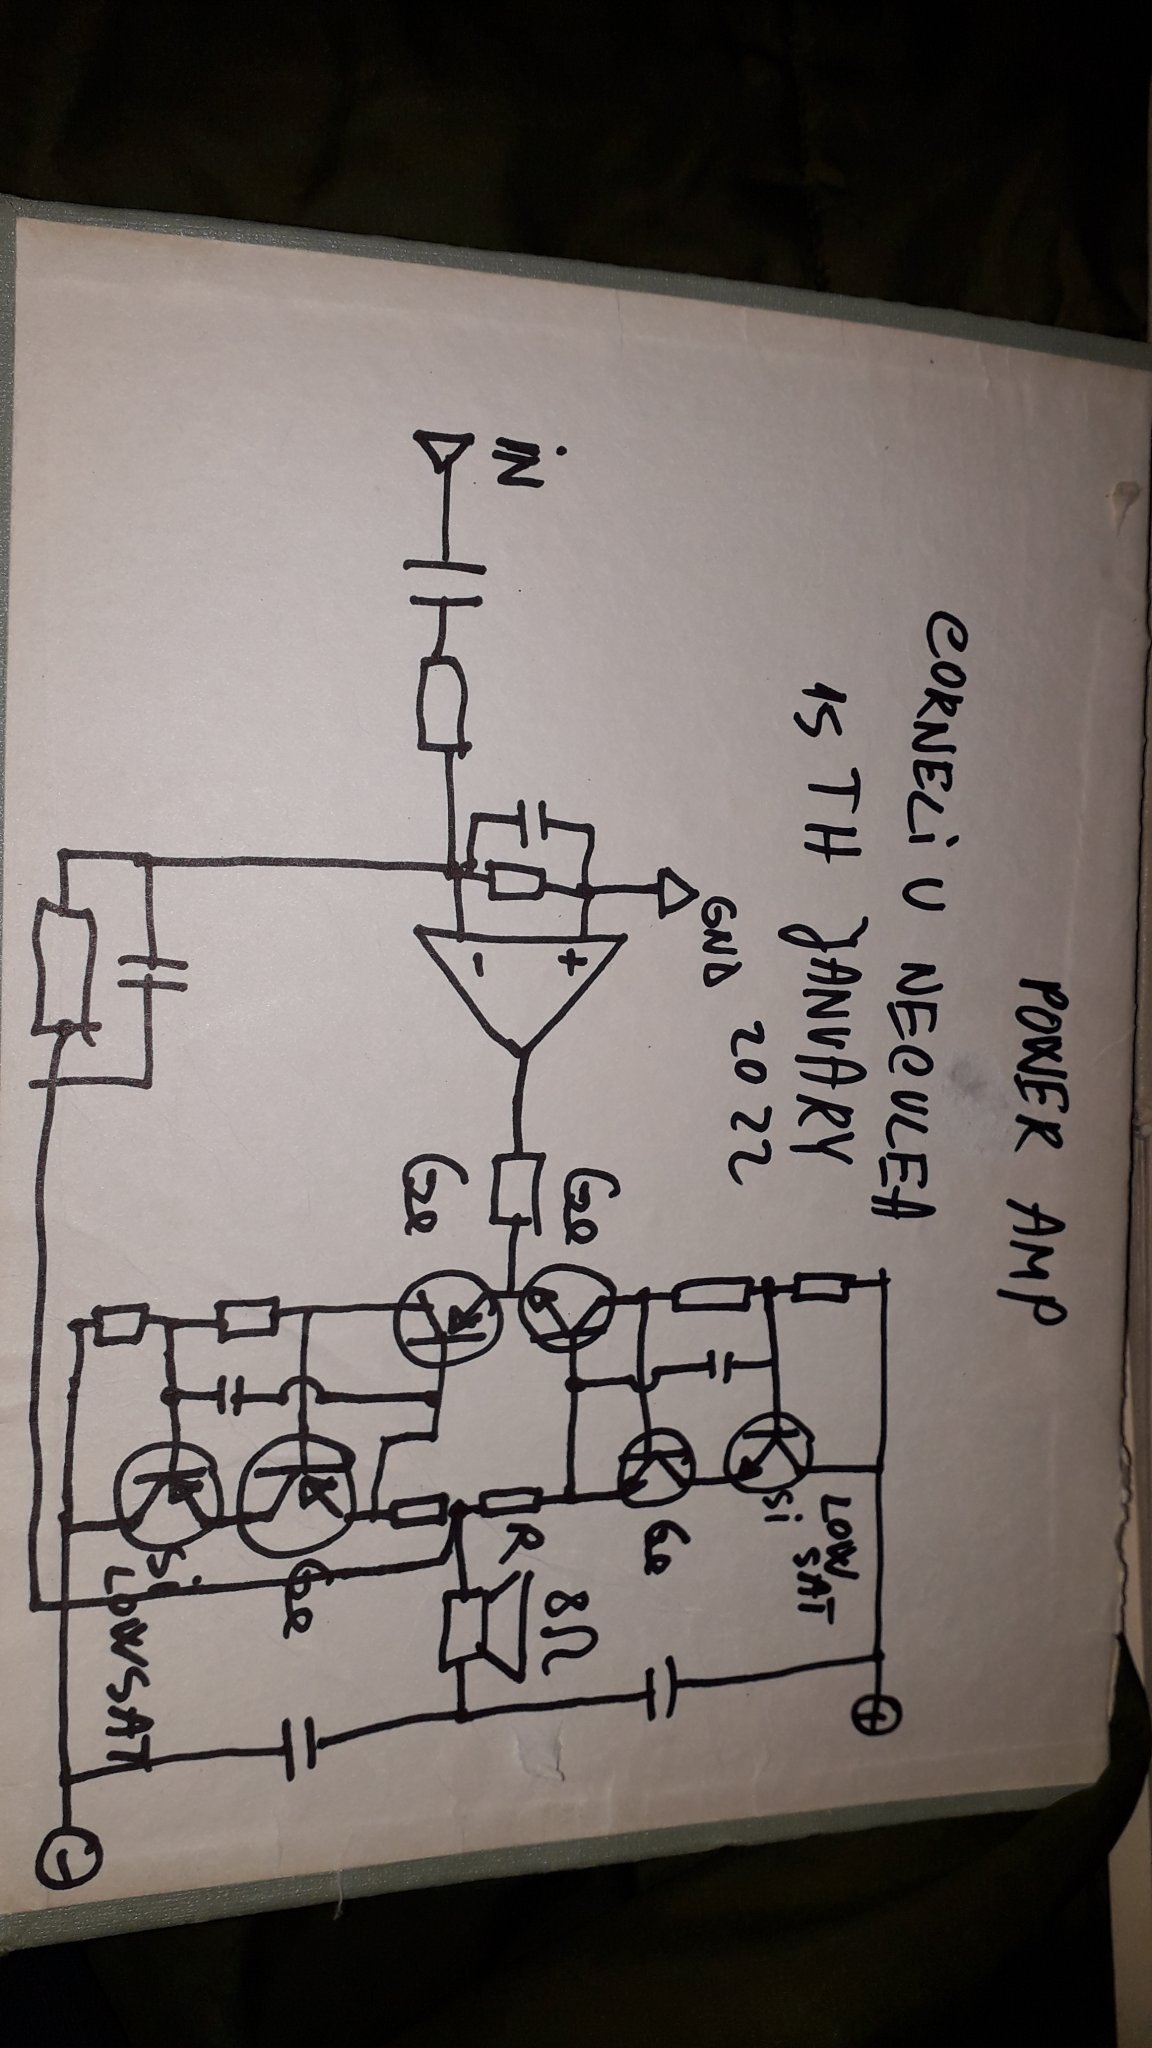 POWER AMP
CORNELIU NECULEA
15 TH JANUARY
2022
GND
iN
+
-
Ge
Ge
LOW
SAT
Si
Ge
R
8Ω
Ge
Si
LOW SAT
+
-